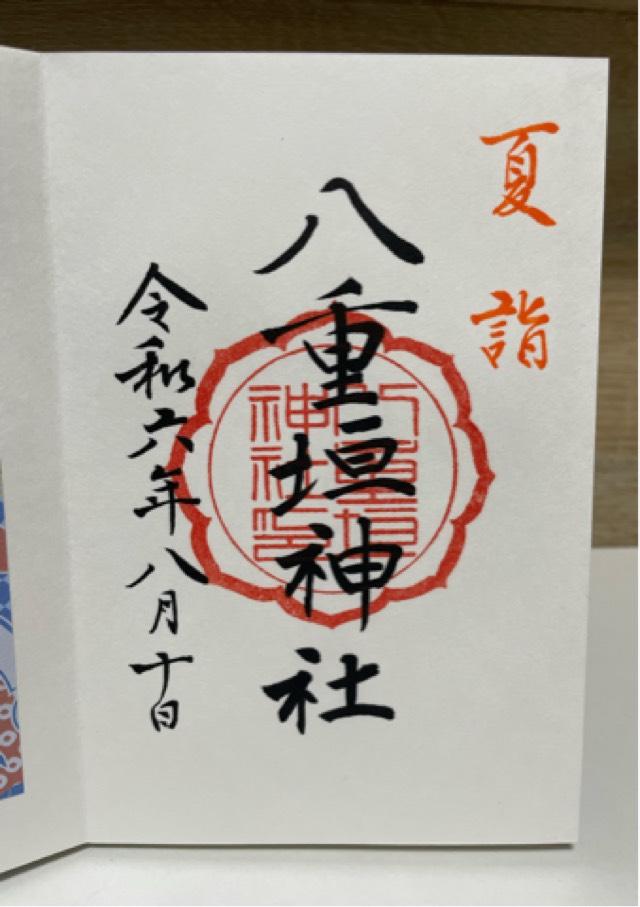 夏詣
八重垣神社
八重垣
神社印
令和六年八月十日